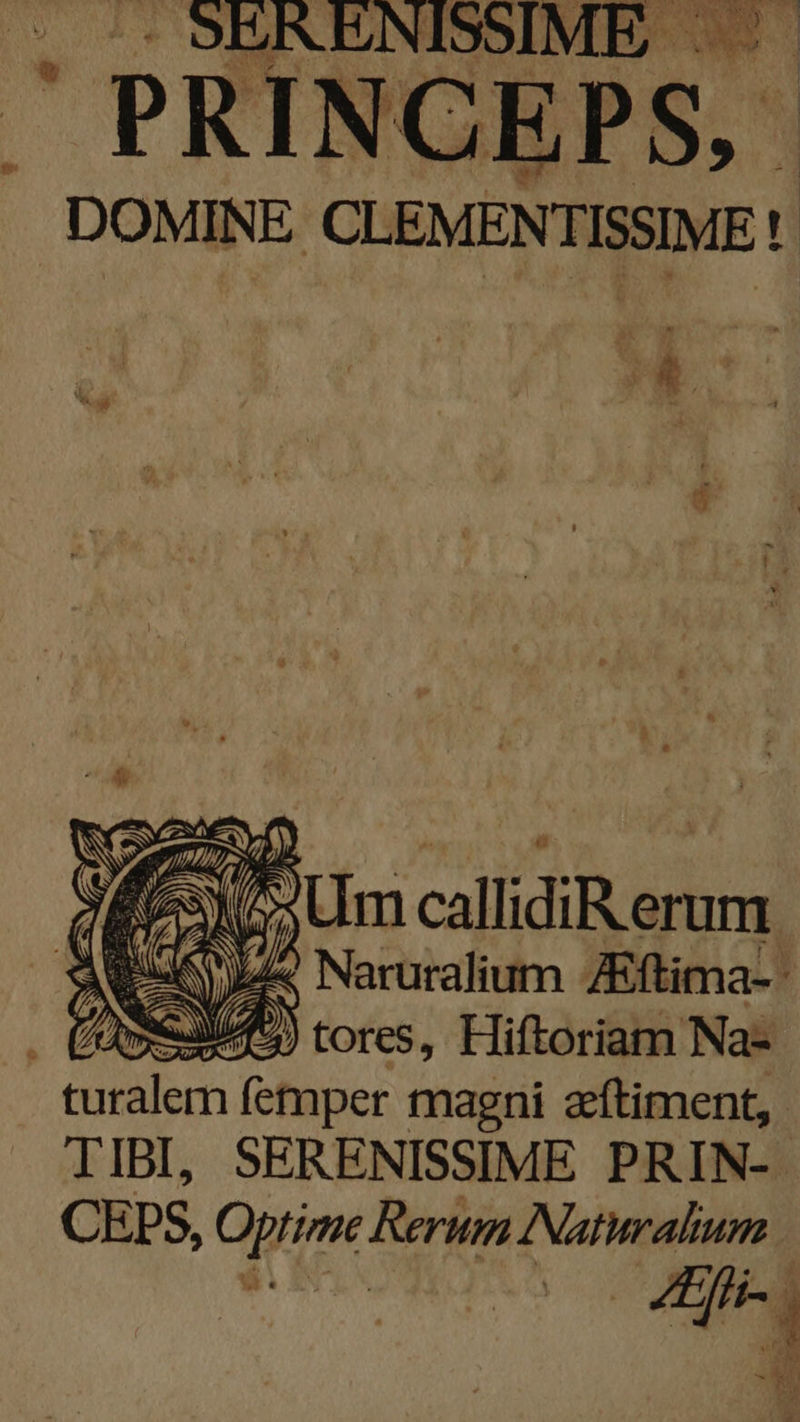 SERENISSIME
PRINCEPS,
DOMINE CLEMENTISSIME!
CUm callidiRerum
Naruralium Æſtima-
tores, Hiſtoriam Na-
turalem ſemper magni æſtiment,
TIBI, SERENISSIME PRIN-
CEPS, Optime Rerum Naturalium
Æſti-